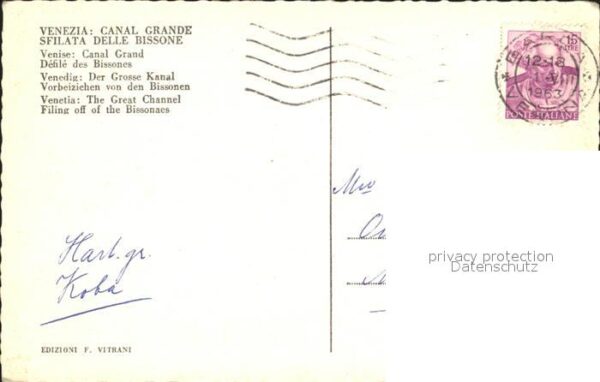 VENEZIA: CANAL GRANDE
SFILATA DELLE BISSONE
Venise: Canal Grand
Défilé des Bissones
Venedig: Der Grosse Kanal
Vorbeiziehen von den Bissonen
Venetia: The Great Channel
Filing off of the Bissonaes
15
LIRE
12-18
1963
VENEZIA
POSTE ITALIANE
Hart. gr.
Koba
privacy protection
Datenschutz
EDIZIONI F. VITRANI